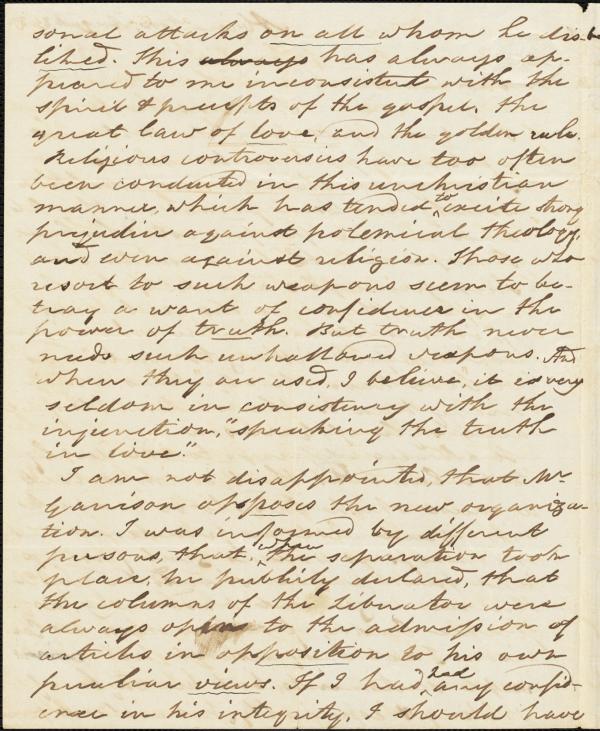 sonal attacks on all whom he dis-
liked. This always has always ap-
peared to me inconsistent with the
spirit & precepts of the gospel, the
great law of love, and the golden rule.
Religious controversies have too often
been conducted in this unchristian
manner, which has tended to excite strong
prejudice against polemical theology,
and even against religion. Those who
resort to such weapons seem to be-
tray a want of confidence in the
power of truth. But truth never
needs such unhallowed weapons. And
when they are used, I believe, it is very
seldom in consistency with the
injunction, "speaking the truth
in love".
I am not disappointed, that Mr
Garrison opposes the new organiza-
tion. I was informed by different
persons, that when the separation took
place, he publicly declared, that
the columns of the Liberator were
always open to the admission of
articles in opposition to his own
peculiar views. If I had had any confid-
ence in his integrity, I should have